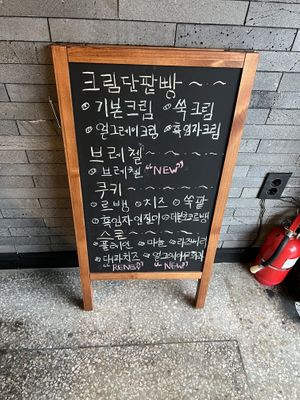 크림단팥빵 ~ ~
기본크림 쑥크림
얼그레이크림, 흑임자크림
브레첼 ~ ~ ~ ~
브레첼 "NEW"
쿠키 ~ ~ ~ ~ ~
르뱅 치즈 쑥팥
흑임자인절미
스콘 ~ ~ ~ ~
플레인 마늘 라즈베리
대파치즈 얼그레이무화과
NEW